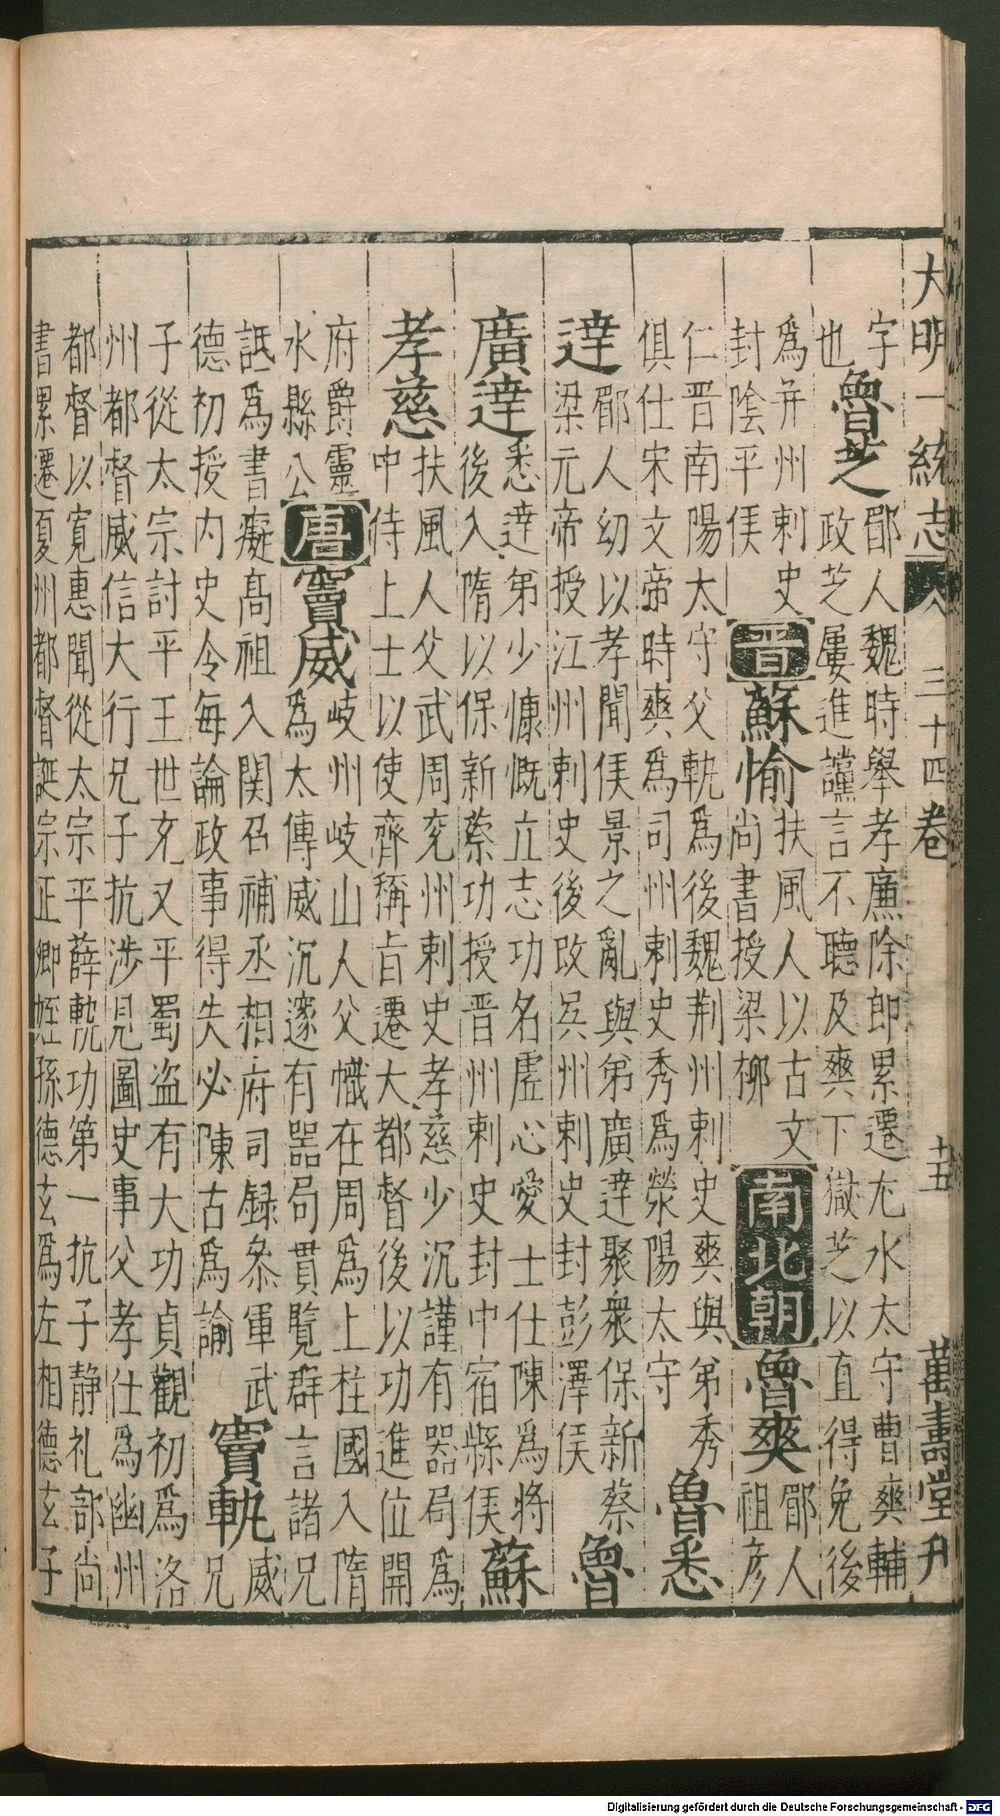 大明一統志 三十四卷 十五 萬壽堂刋
字
也
魯芝
郿人魏時舉孝廉除郎累遷尢水太守曹爽輔
政芝屢進讜言不聽及爽下獄芝以直得免後
爲并州刺史
封陰平侯
晉
蘇愉
扶風人以古文
尚書授梁柳
南北朝
魯爽
郿人
祖彥
仁晉南陽太守父軌爲後魏荆州刺史爽與弟秀
俱仕宋文帝時爽爲司州刺史秀爲滎陽太守
魯悉
達
郿人幼以孝聞侯景之亂與弟廣達聚衆保新蔡
梁元帝授江州刺史後改吳州刺史封彭澤侯
魯
廣達
悉達弟少慷慨立志功名虗心愛士仕陳爲將
後入隋以保新蔡功授晉州刺史封中宿縣侯
蘇
孝慈
扶風人父武周兖州刺史孝慈少沉謹有器局爲
中侍上士以使齊稱旨遷大都督後以功進位開
府爵靈
水縣公
唐
竇威
岐州岐山人父熾在周爲上柱國入隋
爲太傳威沉邃有器局貫覽群言諸兄
詆爲書癡髙祖入関召補丞相府司録叅軍武
德初授内史令每論政事得失必陳古爲論
竇軌
威
兄
子從太宗討平王世充又平蜀盗有大功貞觀初爲洛
州都督威信大行兄子抗涉見圖史事父孝仕爲幽州
都督以寛惠聞從太宗平薛軏功第一抗子静礼部尚
書累遷夏州都督誕宗正卿姪孫德玄爲左相德玄子
Digitalisierung gefördert durch die Deutsche Forschungsgemeinschaft - DFG